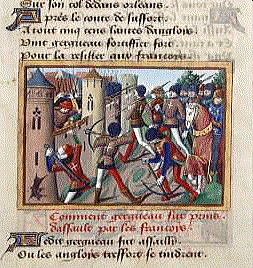 Sur son col dedans orleans.
Apres le conte de suffort.
A tout cinq cens lances danglois
Vint gergueau fortiffier fort
Pour la resister aux francois
Comment gergueau fut prins
dassault par les francois.
Ledit gergueau fut assailly
Ou les anglois tresfort se tindrent.